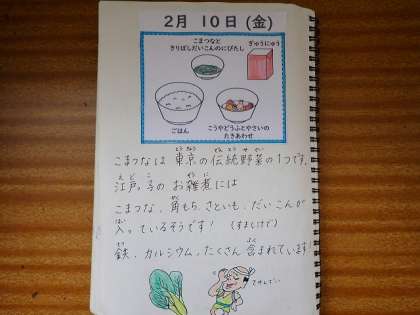 2月 10日(金)
こまつなと
きりぼしだいこんのにびたし
ぎゅうにゅう
ごはん
こうやどうふとやさいの
たきあわせ
とうきょう でんとうやさい
こまつなは 東京の伝統野菜の1つです。
えどこ ぞうに
江戸っ子の お雑煮には
かく
こまつな、角もち、さといも、だいこんが
はい
入っているそうです! (すましじるで)
てつ ふく
鉄、カルシウム、たくさん 含まれています!